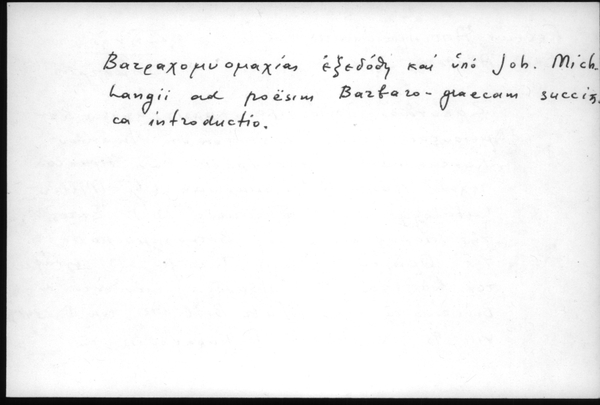 Βατραχομυομαχίας ἐξεδόθη καί ὑπό Joh. Mich.
Langii ad poësim Barbaro-graecam succin
ca introductio.